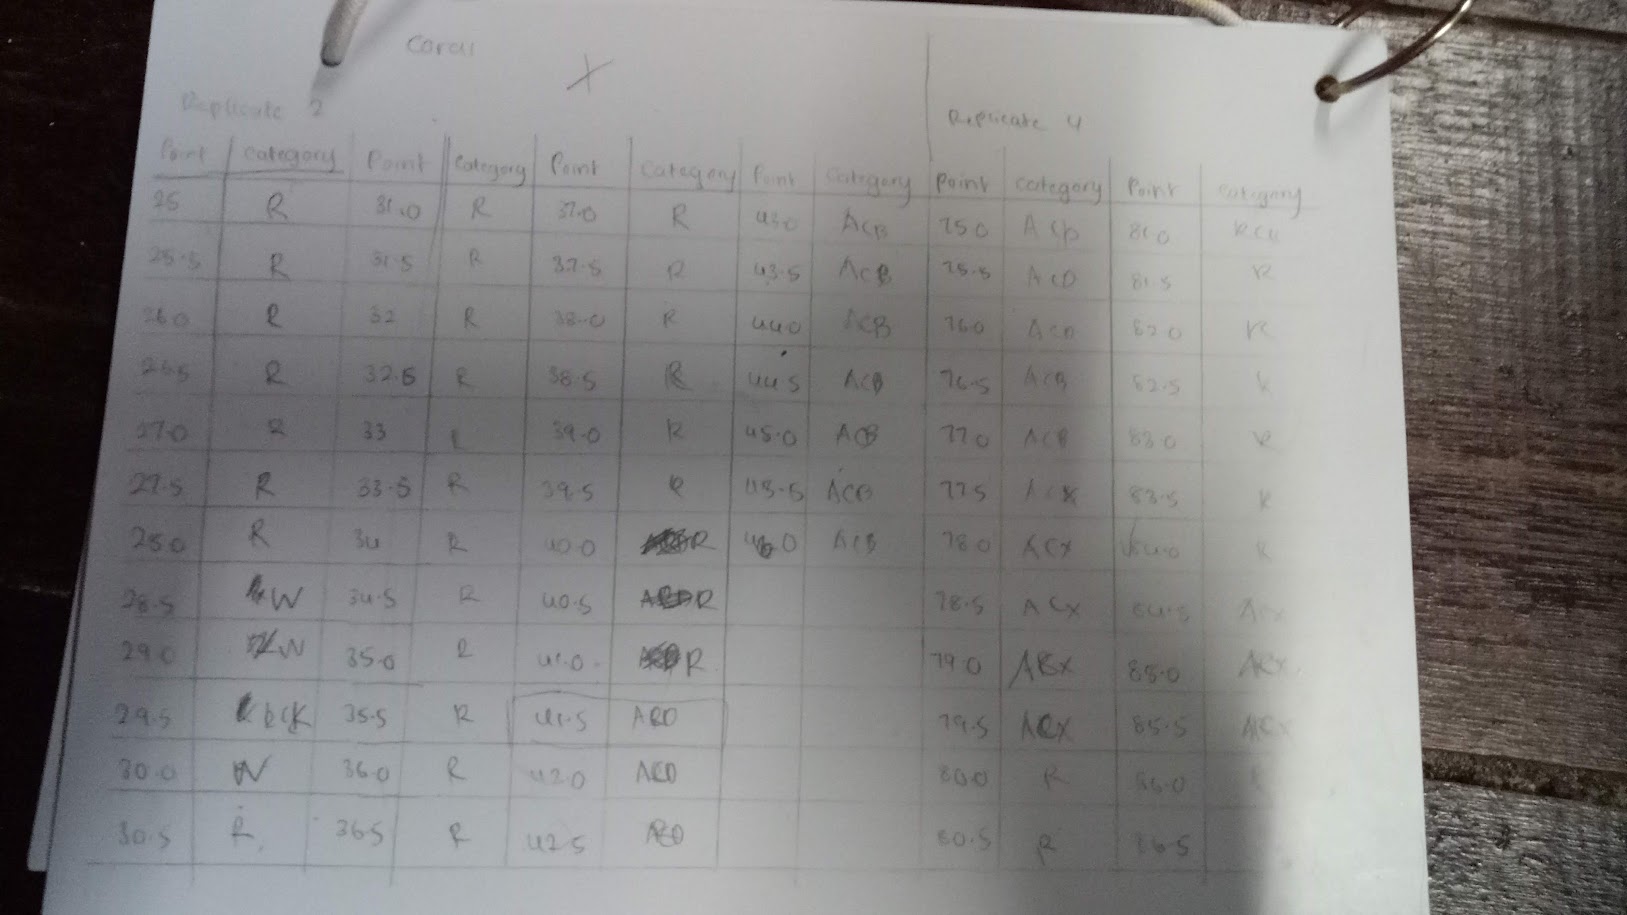 Coral
X
Replicate 2 Replicate 4
Point Category Point Category Point Category Point Category Point Category Point Category
25 R 31.0 R 37.0 R 43.0 ACB 75.0 81.0 RCK
25.5 R 31.5 R 37.5 R 43.5 ACB 75.5 ACD 81.5 R
26.0 R 32 R 38.0 R 44.0 ACB 76.0 82.0 R
26.5 R 32.5 R 38.5 R 44.5 ACB 76.5 ACB 82.5 R
27.0 R 33 39.0 R 45.0 ACB 77.0 ACB 83.0 R
27.5 R 33.5 R 39.5 R 45.5 ACB 77.5 ACX 83.5 R
28.0 R 34 R 40.0 R 46.0 ACB 78.0 ACX 84.0 R
28.5 W 34.5 R 40.5 R 78.5 ACX 84.5 ACX
29.0 W 35.0 R 41.0 R 79.0 85.0
29.5 35.5 R 41.5 79.5 ACX 85.5 ACX
30.0 W 36.0 R 42.0 ACD 80.0 R 86.0
30.5 R 36.5 R 42.5 80.5 R 86.5